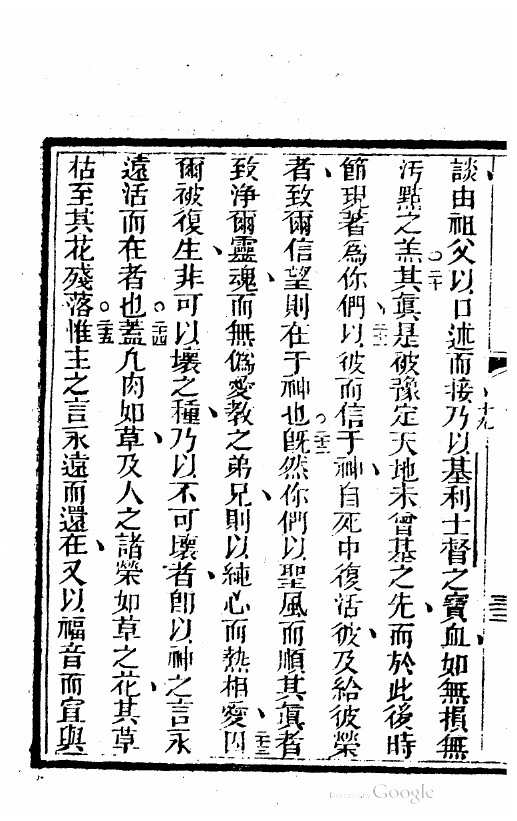 談由祖父以口述而接乃以基利士督之寶血如無損無
十九
污點之羔其眞是被豫定天地未曾基之先而於此後時
二十
節現著為你們以彼而信于神自死中復活彼及給彼榮
二十一
者致爾信望則在于神也既然你們以聖風而順其眞者
二十二
致净爾靈魂而無偽愛教之弟兄則以純心而熱相愛因
二十三
爾被復生非可以壞之種乃以不可壞者即以神之言永
遠活而在者也蓋凡肉如草及人之諸榮如草之花其草
二十四
枯至其花殘落惟主之言永遠而還在又以福音而宣與
二十五
Google